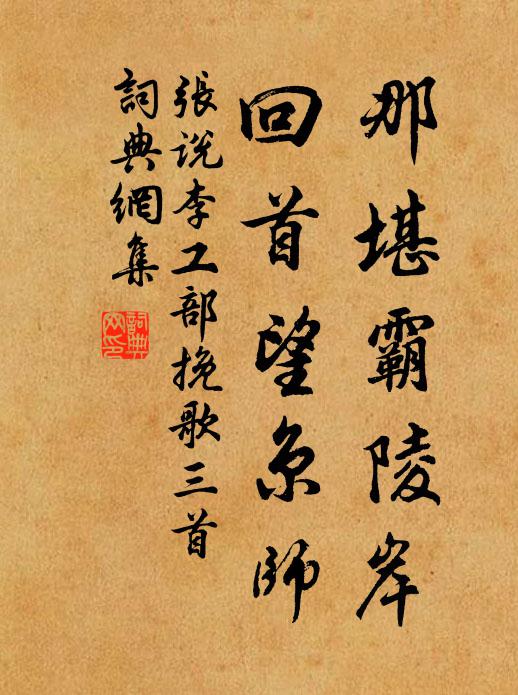 那堪霸陵岸
回首望京师
張说李工部挽歌三首
詞典網集
詞典
网印